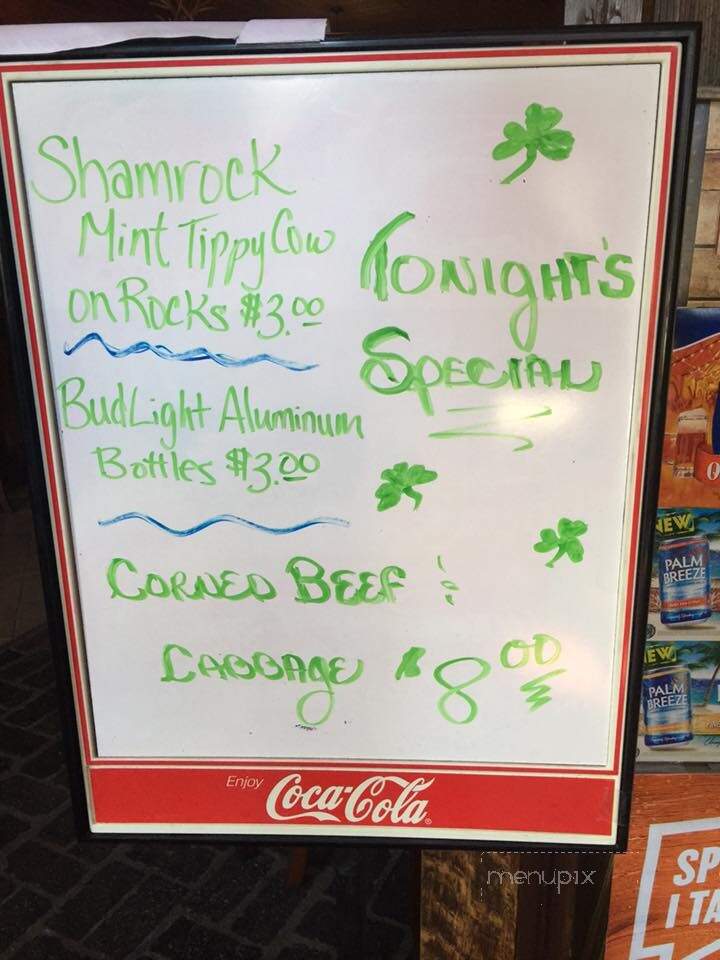 Shamrock
Mint Tippy Cow
on Rocks $3.00
Bud Light Aluminum
Bottles $3.00
TONIGHT'S
SPECIAL
CORNED BEEF &
CABBAGE $8.00
Enjoy Coca-Cola
NEW
PALM
BREEZE
NEW
PALM
BREEZE
SP
I TA
menupix